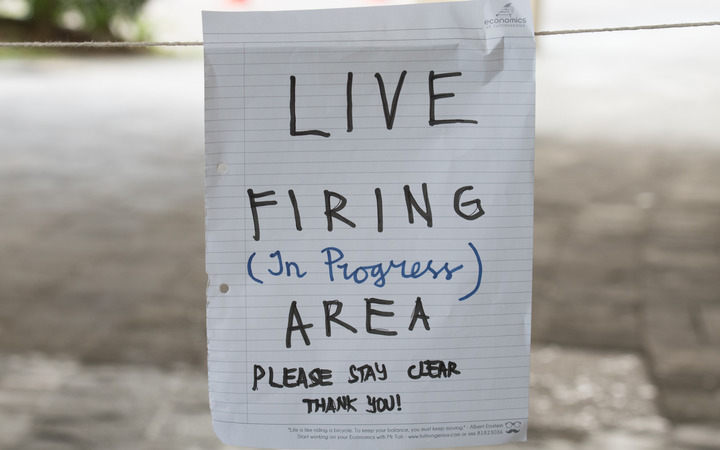 economics
LIVE
FIRING
(In Progress)
AREA
PLEASE STAY CLEAR
THANK YOU!
"Life is like riding a bicycle. To keep your balance, you must keep moving." - Albert Einstein
Start working on your Economics with Mr Toh -